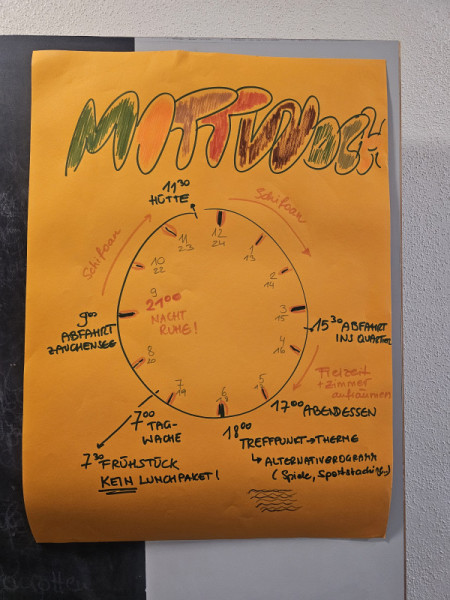 MITTWOCH
11³⁰
HÜTTE
Schifoan
Schifoan
12
24
11
23
1
13
10
22
2
14
9
21⁰⁰
NACHT
RUHE!
3
15
9⁰⁰
ABFAHRT
ZAUCHENSEE
15³⁰ ABFAHRT
INS QUARTIER
8
20
4
16
Freizeit
+ Zimmer
aufräumen
7
19
6
18
5
17⁰⁰ ABENDESSEN
7⁰⁰
TAG-
WACHE
18⁰⁰
TREFFPUNKT → THERME
↳ ALTERNATIVPROGRAMM
(Spiele, Sportstacking...)
7³⁰ FRÜHSTÜCK
KEIN LUNCHPAKET!